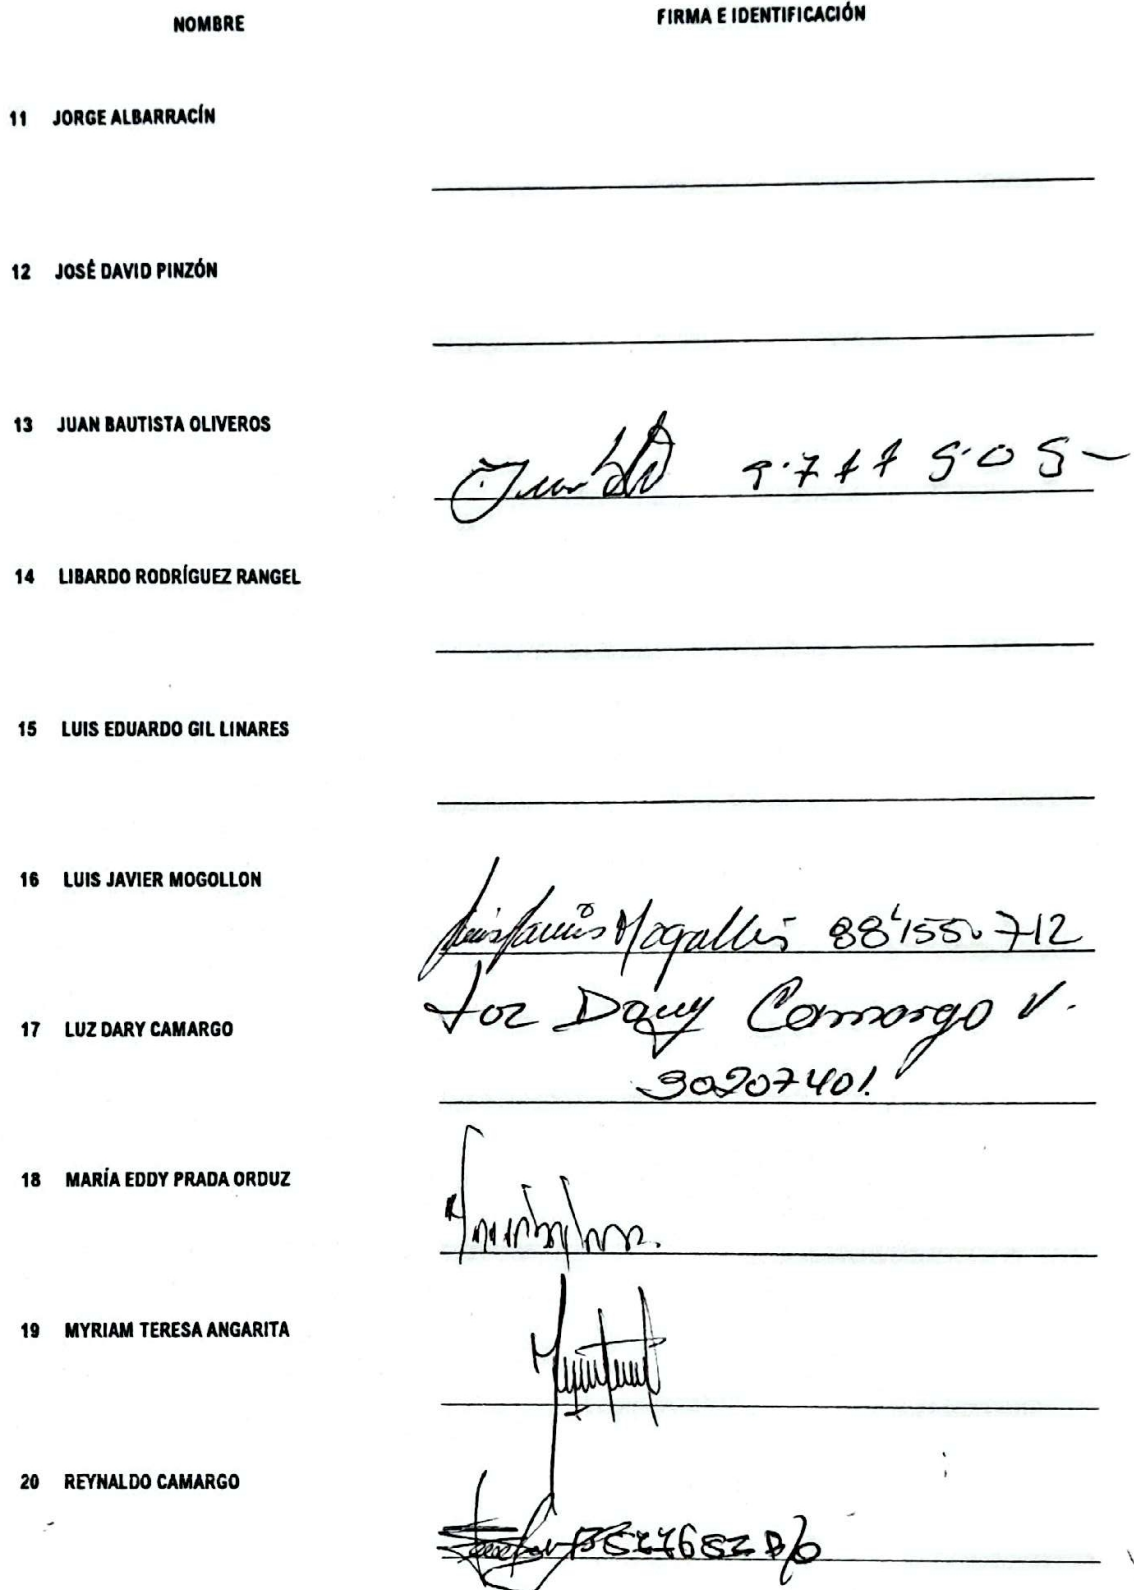 NOMBRE FIRMA E IDENTIFICACIÓN
11 JORGE ALBARRACÍN
12 JOSÉ DAVID PINZÓN
13 JUAN BAUTISTA OLIVEROS
14 LIBARDO RODRÍGUEZ RANGEL
15 LUIS EDUARDO GIL LINARES
16 LUIS JAVIER MOGOLLON
88'155.712
17 LUZ DARY CAMARGO
Luz Dary Camargo V.
30207401.
18 MARÍA EDDY PRADA ORDUZ
19 MYRIAM TERESA ANGARITA
20 REYNALDO CAMARGO